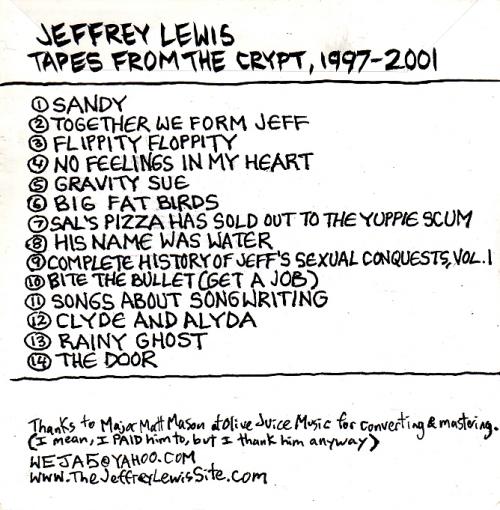 JEFFREY LEWIS
TAPES FROM THE CRYPT, 1997-2001
① SANDY
② TOGETHER WE FORM JEFF
③ FLIPPITY FLOPPITY
④ NO FEELINGS IN MY HEART
⑤ GRAVITY SUE
⑥ BIG FAT BIRDS
⑦ SAL'S PIZZA HAS SOLD OUT TO THE YUPPIE SCUM
⑧ HIS NAME WAS WATER
⑨ COMPLETE HISTORY OF JEFF'S SEXUAL CONQUESTS, VOL. 1
⑩ BITE THE BULLET (GET A JOB)
⑪ SONGS ABOUT SONGWRITING
⑫ CLYDE AND ALYDA
⑬ RAINY GHOST
⑭ THE DOOR
Thanks to Major Matt Mason at Olive Juice Music for converting & mastering.
(I mean, I PAID him to, but I thank him anyway)
WEJA5@YAHOO.COM
WWW.TheJeffreyLewisSite.com